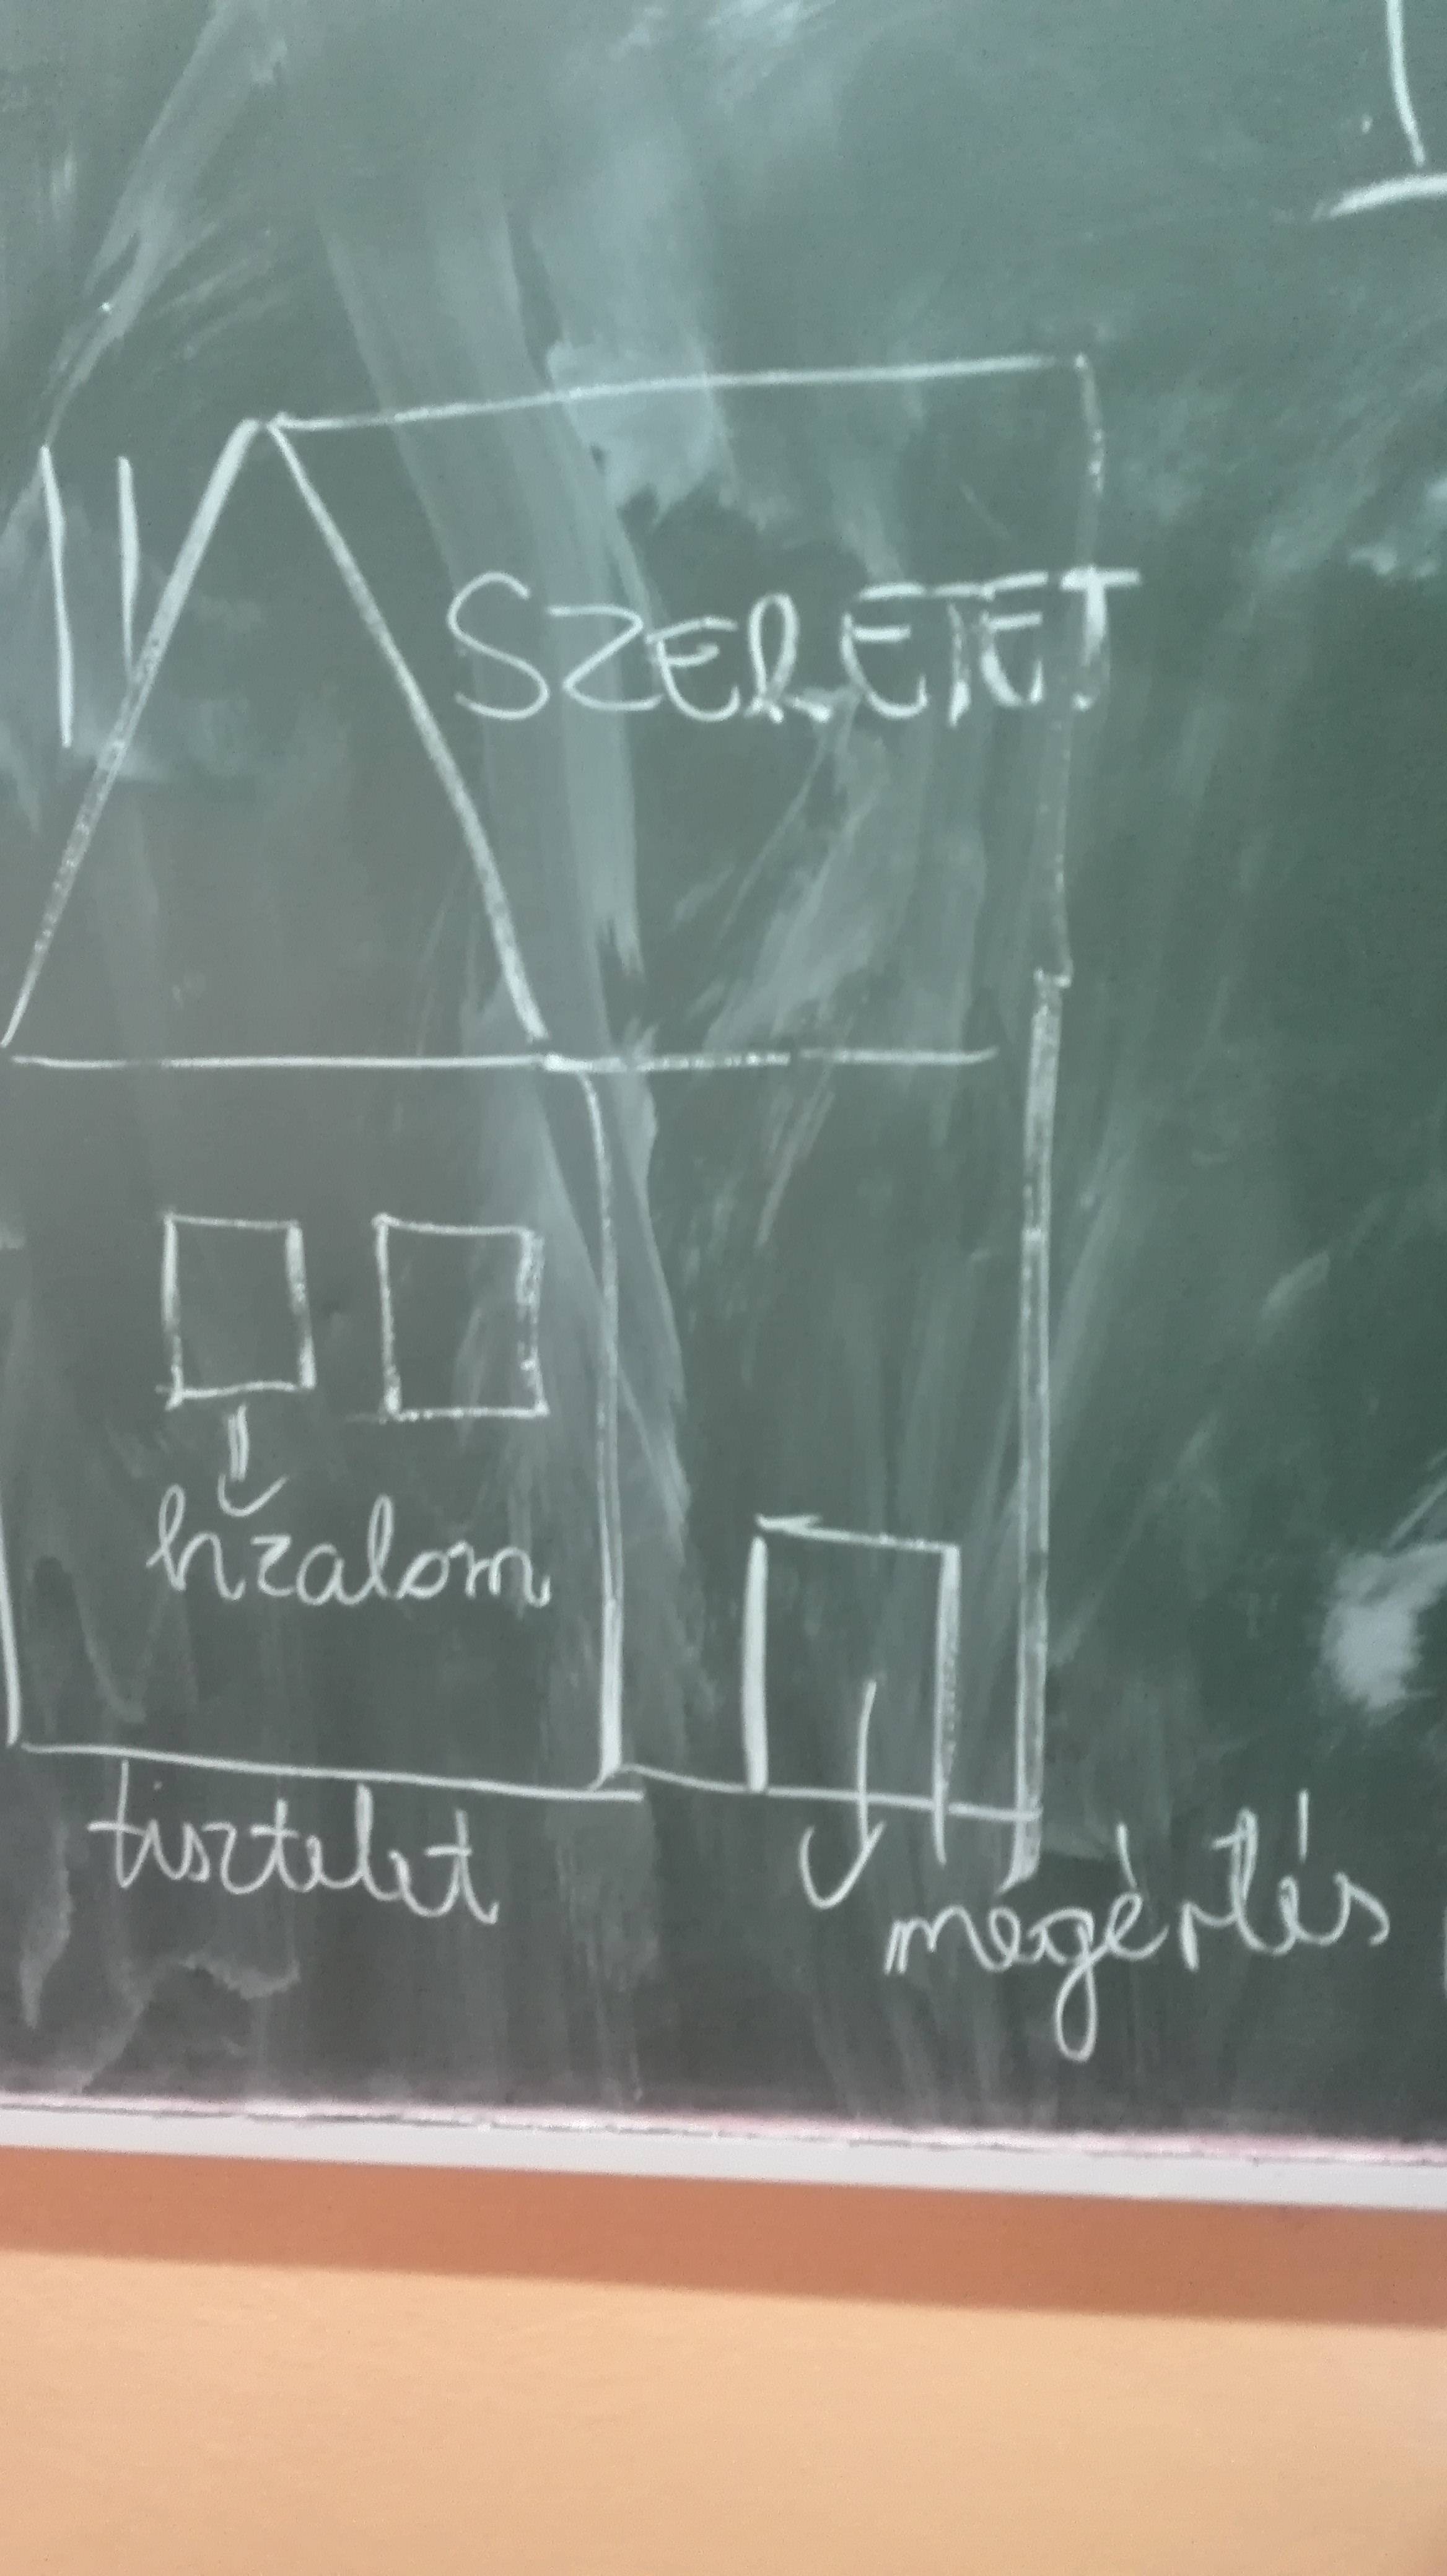 SZERETET
bizalom
tisztelet
megértés